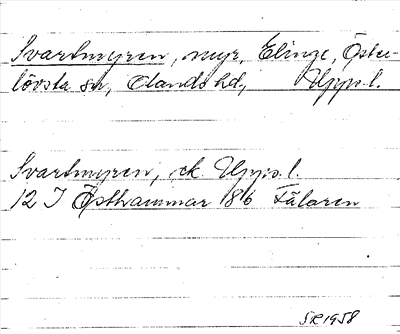 Svartmyren, myr, Elinge, Öster-
lövsta sn, Olands hd, Upps. l.
Svartmyren, ek. Upps. l.
12 I Östhammar 8b Fälaren
SR 1958